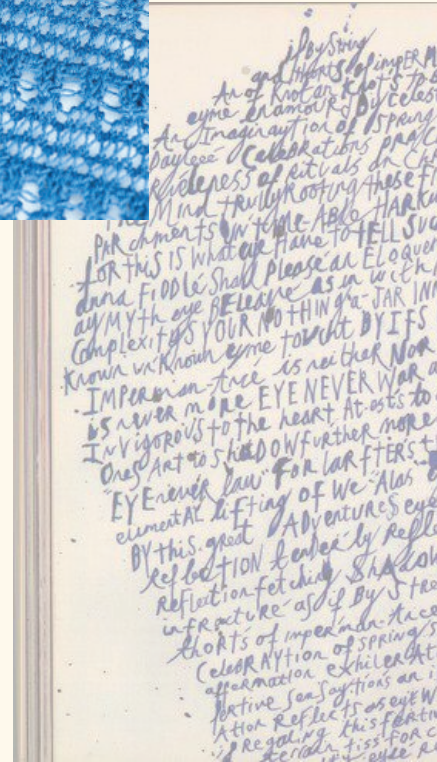 if By String
and thorts of imPERM
An of Knot an Knots to a
eyme enamoured by celes
An Imaginaytion of SPRING
Dayleeé Celebrations PRAC
RiPLeness of Rituals an Ch
The Mind tRulyRooting these F
PARchments UN tame Able HARK
fOR this IS what eye Have to tELL SU
anna FiDDLé Shall Pleasé an ELoque
ay MYth eye BELeavé as in with
ComplexitYS YOUR NOTHING a-JAR IN
Known unKnown eyme touCHt BY IFS
IMPERman-Ance is neitheR NOR
is never more EYE NEVER WAR a
INVigorous to the heart At-osts to
Ones Art to ShaDOW further more
"EYE never law" FOR LARfTERS t
elementAL Lifting OF We "Alas
BY this great ADventures eye
ReflecTION tender by Refl
Reflection fetching ShadoW
infracture as if By Stre
thorts of imperman-Ance
CeleBRAYtion of SPRING/S
affermation exhilerAt
fertive Sensaytions an i
Ation Reflects as eye W
if Regaling this fertiv
terrain tiss FOR C